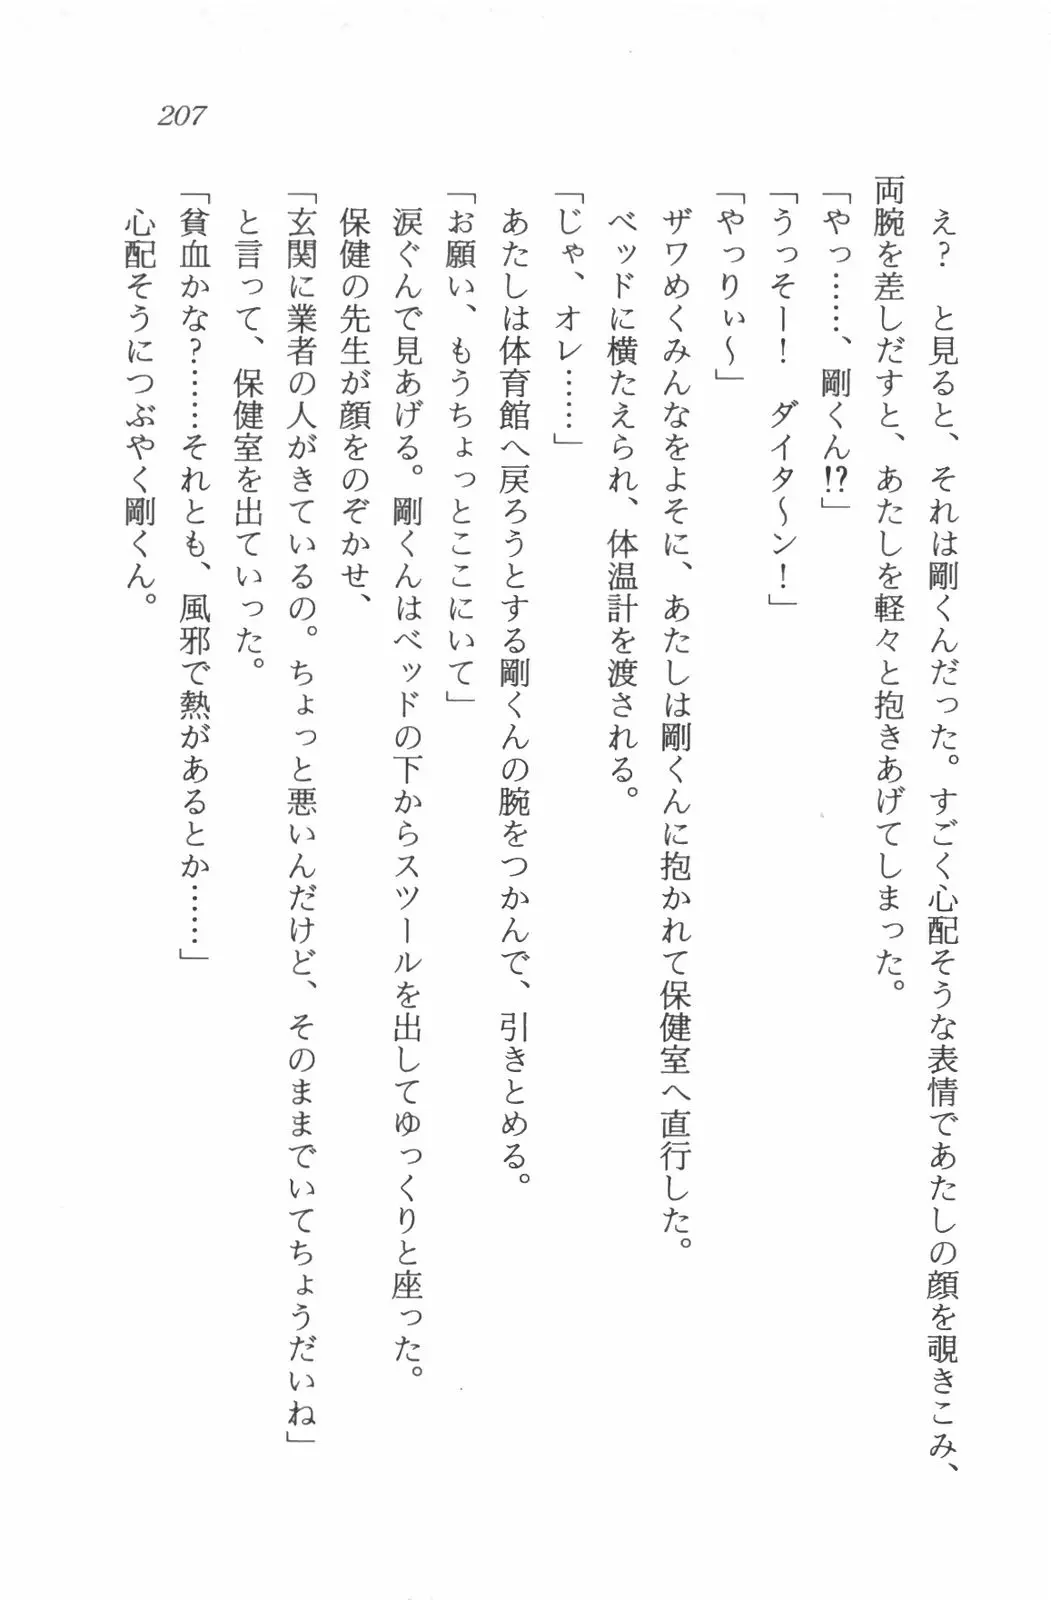 207
え？　と見ると、それは剛くんだった。すごく心配そうな表情であたしの顔を覗きこみ、
両腕を差しだすと、あたしを軽々と抱きあげてしまった。
「やっ……、剛くん!?」
「うっそー！　ダイタ〜ン！」
「やっりぃ〜」
ザワめくみんなをよそに、あたしは剛くんに抱かれて保健室へ直行した。
ベッドに横たえられ、体温計を渡される。
「じゃ、オレ……」
あたしは体育館へ戻ろうとする剛くんの腕をつかんで、引きとめる。
「お願い、もうちょっとここにいて」
涙ぐんで見あげる。剛くんはベッドの下からスツールを出してゆっくりと座った。
保健の先生が顔をのぞかせ、
「玄関に業者の人がきているの。ちょっと悪いんだけど、そのままでいてちょうだいね」
と言って、保健室を出ていった。
「貧血かな？……それとも、風邪で熱があるとか……」
心配そうにつぶやく剛くん。